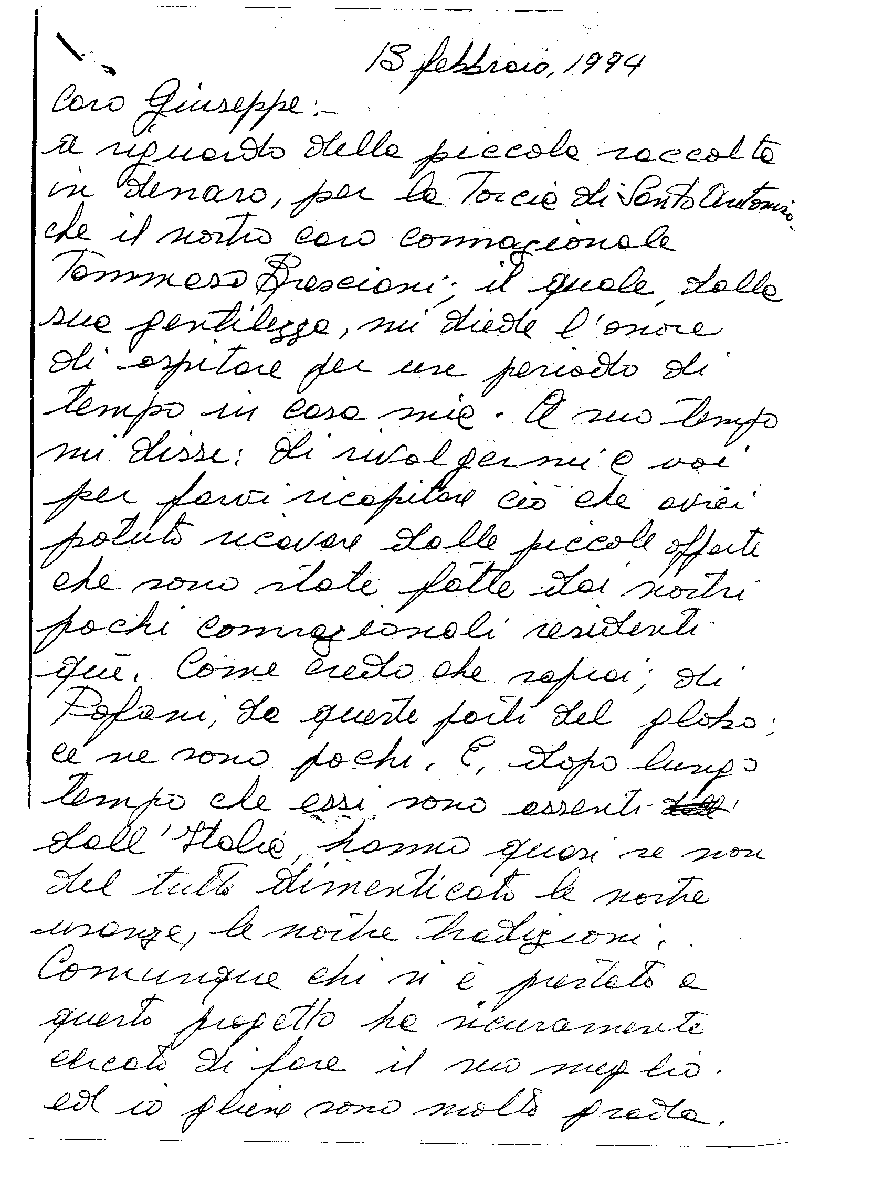 13 febbraio, 1994
Caro Giuseppe:-
a riguardo della piccola raccolta
in denaro, per la Torcia di Santo Antonio.
che il nostro caro connazionale
Tommaso Bruscioni; il quale, dalla
sua gentilezza, mi diede l'onore
di ospitare per un periodo di
tempo in casa mia. A suo tempo
mi disse: di rivolgermi a voi
per farvi ricapitare ciò che avrei
potuto ricavare dalle piccole offerte
che sono state fatte dai nostri
pochi connazionali residenti
qui. Come credo che saprai; di
Pofani, da queste parti del globo;
ce ne sono pochi. E, dopo lungo
tempo che essi sono assenti
dall'Italia, hanno quasi se non
del tutto dimenticato le nostre
usanze, le nostre tradizioni.
Comunque chi si è prestato a
questo progetto ha sicuramente
cercato di fare il suo meglio.
ed io gliene sono molto grada.